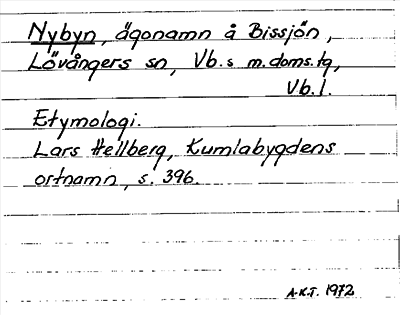 Nybyn, ägonamn å Bissjön,
Lövångers sn, Vb.s m.doms.tg,
Vb.l.
Etymologi.
Lars Hellberg, Kumlabygdens
ortnamn, s. 396.
A-K.T. 1972